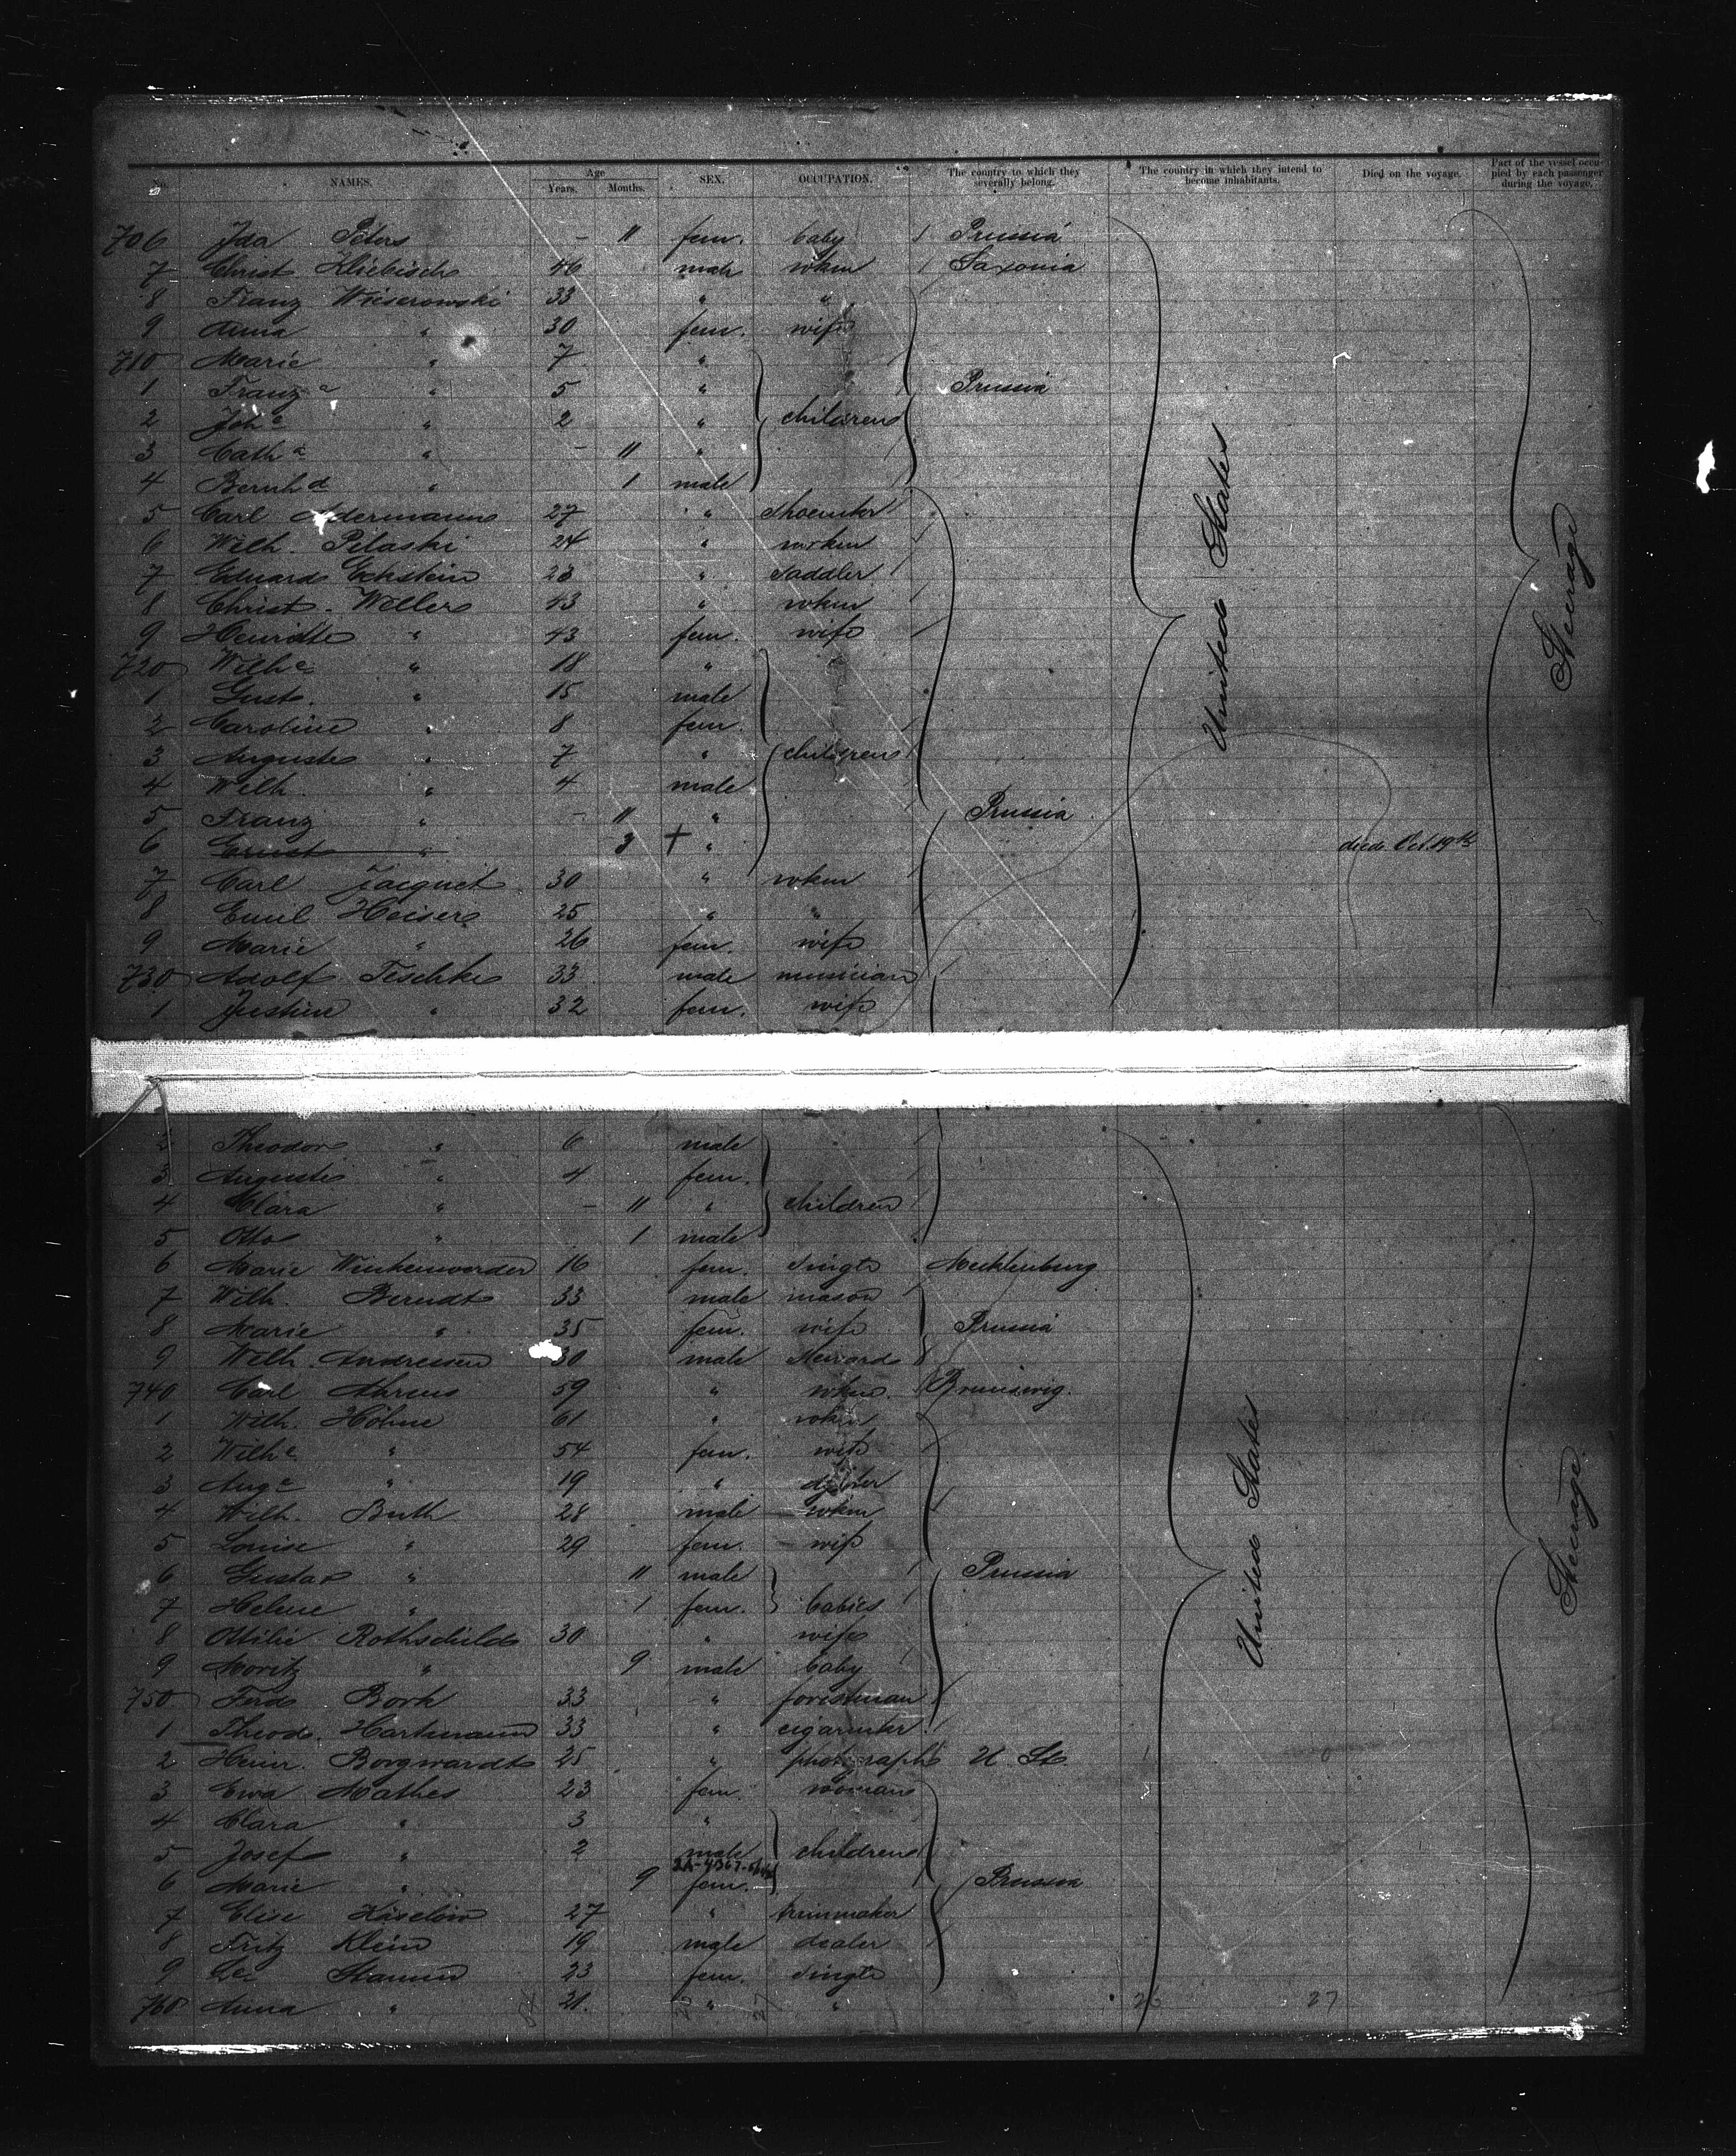 No. NAMES. Age Years. Months. SEX. OCCUPATION. The country to which they severally belong. The country in which they intend to become inhabitants. Died on the voyage. Part of the vessel occupied by each passenger during the voyage.
706 Ida Peters - 11 fem. baby Prussia
7 Christ Kliebisch 46 male wkm Saxonia
8 Franz Wieserowski 33 " "
9 Anna " 30 fem. wife
710 Marie " 7 "
1 Franz a " 5 " Prussia
2 Joh a " 2 " children
3 Cath a " - 11 "
4 Bernh d " 1 male
5 Carl Adermann 27 " Shoemker
6 Wilh. Pilaski 24 " workm
7 Eduard Eckstein 23 " Saddler
8 Christ. Weller 43 " wkm
9 Henriette " 43 fem. wife
720 Wilh e " 18 "
1 Gust. " 15 male
2 Caroline " 8 fem.
3 Auguste " 7 " children
4 Wilh. " 4 male
5 Franz " - 11 " Prussia
6 Ernst " 3 + " died Oct. 19th
7 Carl Jacquet 30 " wkm
8 Emil Heiser 25 " "
9 Marie " 26 fem. wife
730 Adolf Teschke 33 male musician
1 Justine " 32 fem. wife
United States
Steerage
2 Theodor " 6 male
3 Auguste " 4 fem.
4 Clara " - 11 " children
5 Otto " 1 male
6 Marie Winkenwerder 16 fem. single Mecklenburg
7 Wilh. Berndt 33 male mason
8 Marie " 35 fem. wife Prussia
9 Wilh. Andressen 30 male Steward
740 Carl Ahrens 59 " wkm. Brunswig.
1 Wilh. Höhne 61 " wkm
2 Wilh e " 54 fem. wife
3 Aug e " 19 "
4 Wilh. Buth 28 male wkm
5 Louise " 29 fem. wife
6 Gustav " 11 male Prussia
7 Helene " 1 fem. babies
8 Ottilie Rothschild 30 " wife
9 Moritz " 9 male baby
750 Ferd Bork 33 " forestman
1 Theod. Hartmann 33 " cigarmker
2 Heinr. Borgwardt 25 " photograph U. St.
3 Ewa Mathes 23 fem. woman
4 Clara " 3 "
5 Josef " 2 male children
6 Marie " 9 fem. Prussia
7 Elise Häselow 27 "
8 Fritz Klein 19 male dealer
9 Stamm 23 fem. single
760 Anna " 21. " "
United States
Steerage
27